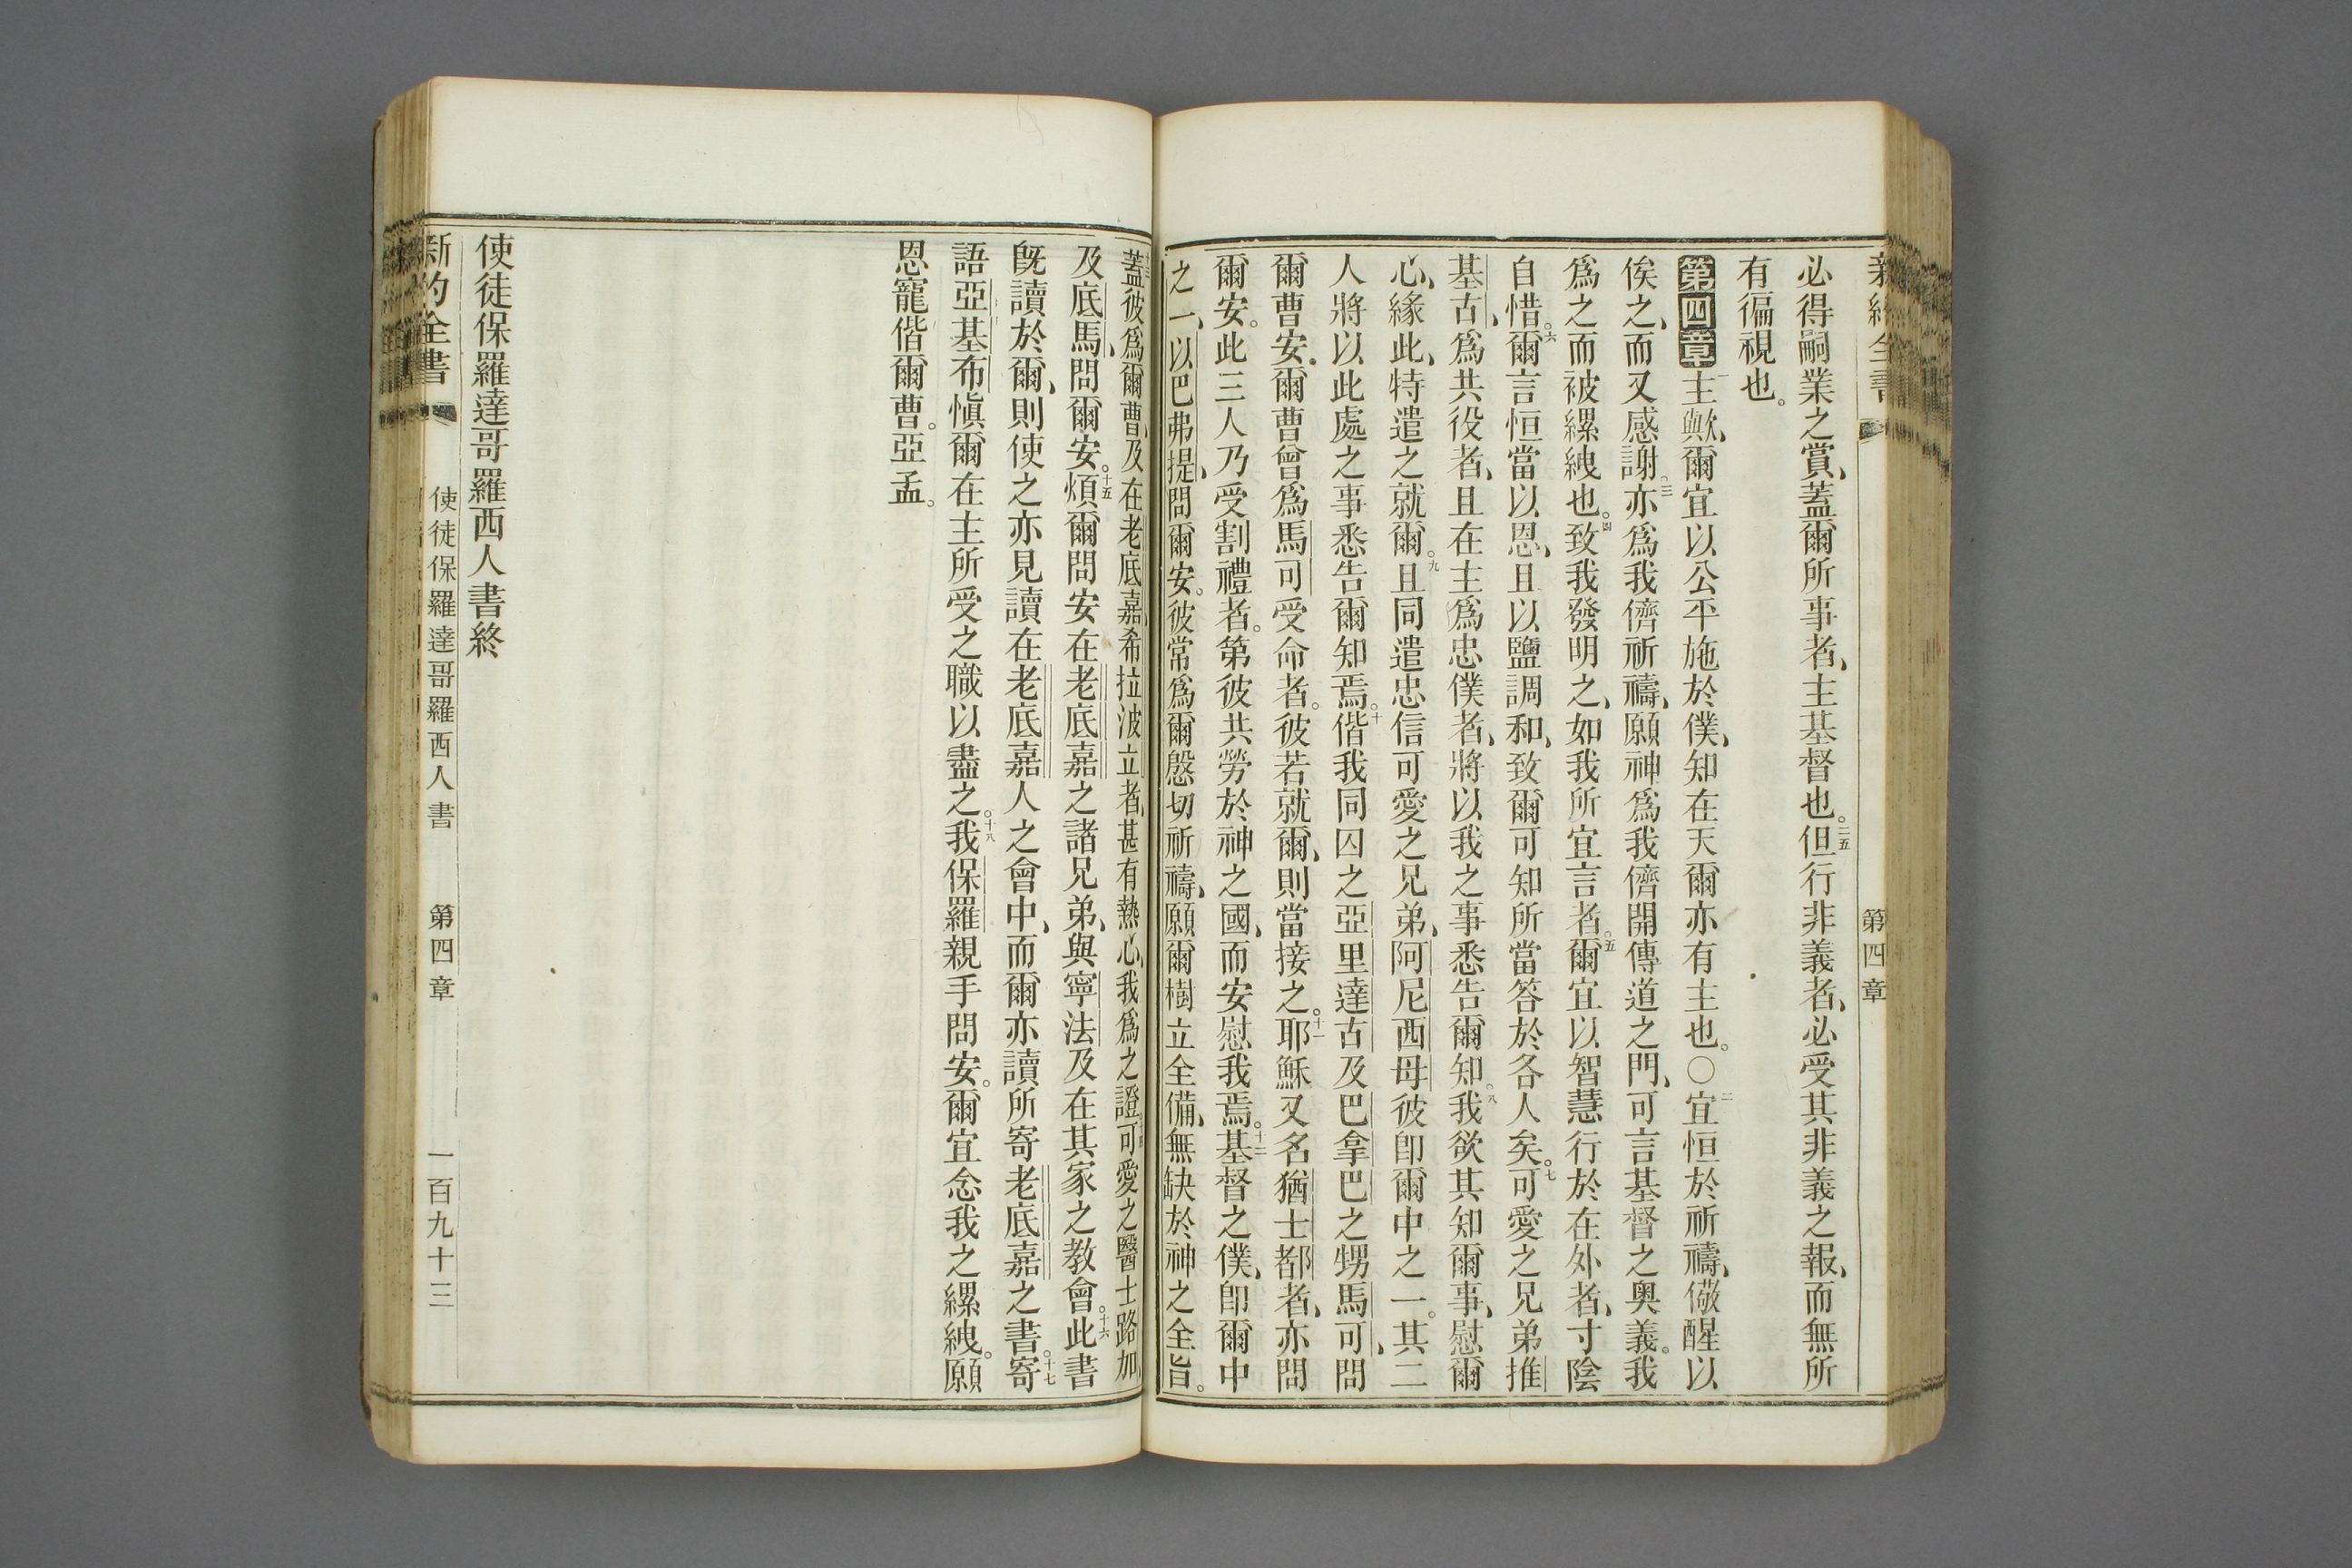 新約全書
第四章
必得嗣業之賞、蓋爾所事者、主基督也。二五但行非義者、必受其非義之報、而無所
有徧視也。
第四章一主歟、爾宜以公平施於僕、知在天爾亦有主也。〇二宜恒於祈禱、儆醒以
俟之、而又感謝。三亦爲我儕祈禱、願神爲我儕開傳道之門、可言基督之奧義。我
爲之而被縲絏也。四致我發明之、如我所宜言者。五爾宜以智慧行於在外者、寸陰
自惜。六爾言恒當以恩、且以鹽調和、致爾可知所當答於各人矣。七可愛之兄弟推
基古、爲共役者、且在主爲忠僕者、將以我之事悉告爾知。八我欲其知爾事、慰爾
心、緣此、特遣之就爾。九且同遣忠信可愛之兄弟、阿尼西母彼卽爾中之一。其二
人將以此處之事悉告爾知焉。十偕我同囚之亞里達古及巴拿巴之甥馬可、問
爾曹安。爾曹曾爲馬可受命者。彼若就爾、則當接之。十一耶穌又名猶士都者、亦問
爾安。此三人乃受割禮者。第彼共勞於神之國、而安慰我焉。十二基督之僕、卽爾中
之一、以巴弗提、問爾安。彼常爲爾慇切祈禱、願爾樹立全備、無缺於神之全旨。
蓋彼爲爾曹、及在老底嘉希拉波立者、甚有熱心、我爲之證可愛之醫士路加、
及底馬、問爾安。十五煩爾問安在老底嘉之諸兄弟、與寧法及在其家之教會。十六此書
旣讀於爾、則使之亦見讀在老底嘉人之會中、而爾亦讀所寄老底嘉之書。十七寄
語亞基布愼爾在主所受之職以盡之。十八我保羅親手問安。爾宜念我之縲絏。願
恩寵偕爾曹。亞孟。
使徒保羅達哥羅西人書終
新約全書
使徒保羅達哥羅西人書
第四章
一百九十三